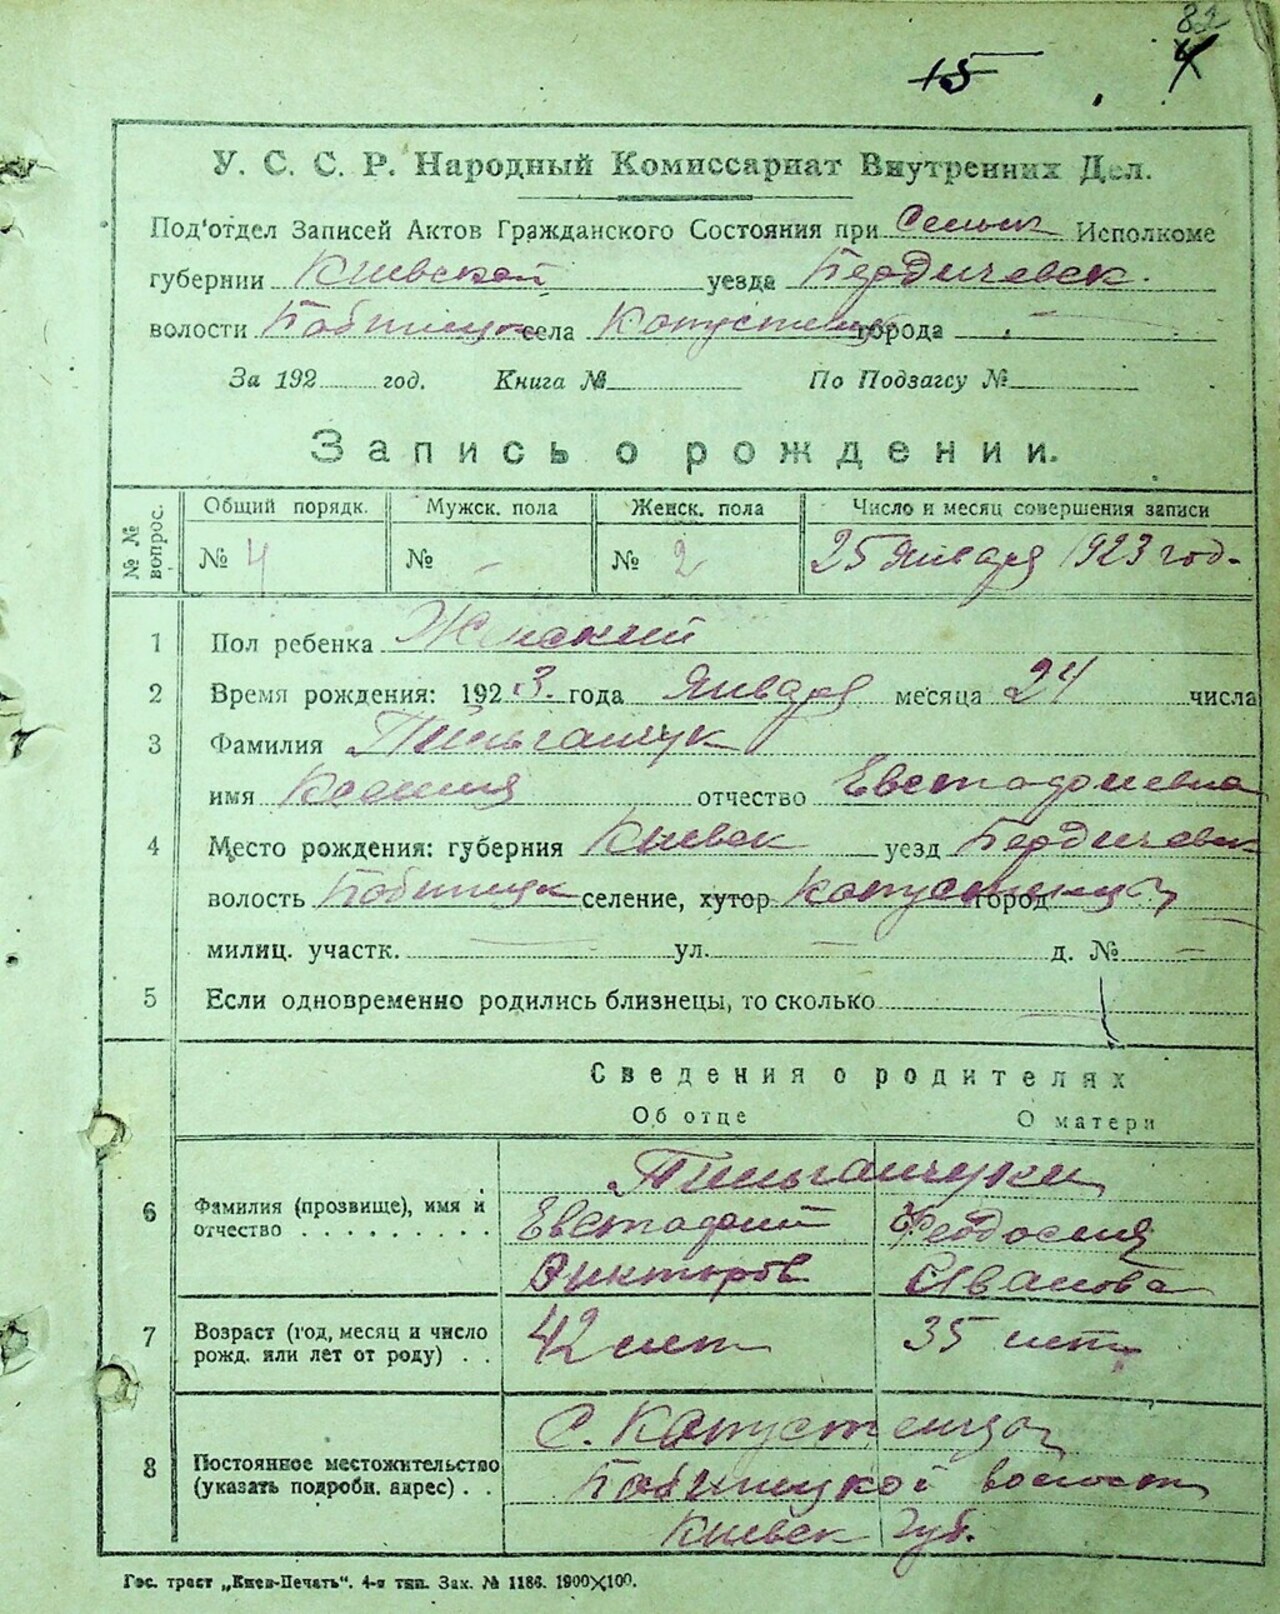 82
15 4
У. С. С. Р. Народный Комиссариат Внутренних Дел.
Под'отдел Записей Актов Гражданского Состояния при Сельск Исполкоме
губернии Киевской уезда Бердичевск.
волости села города
За 192 год. Книга № По Подзагсу №
Запись о рождении.
№ № вопрос. Общий порядк. Мужск. пола Женск. пола Число и месяц совершения записи
№ 4 № — № 2 25 Января 1923 год.
1 Пол ребенка Женский
2 Время рождения: 1923. года Января месяца 24 числа
3 Фамилия
имя Ксения отчество Евстафиевна
4 Место рождения: губерния Киевск уезд Бердичевск
волость селение, хутор город
милиц. участк. — ул. — д. № —
5 Если одновременно родились близнецы, то сколько
Сведения о родителях
Об отце О матери
6 Фамилия (прозвище), имя и отчество
Евстафий Феодосия
Викторов Иванова
7 Возраст (год, месяц и число рожд. или лет от роду) . . 42 лет 35 лет
8 Постоянное местожительство (указать подробн. адрес) . . с.
волости
Киевск губ.
Гос. трест „Киев-Печать“. 4-я тип. Зак. № 1186. 1900×100.